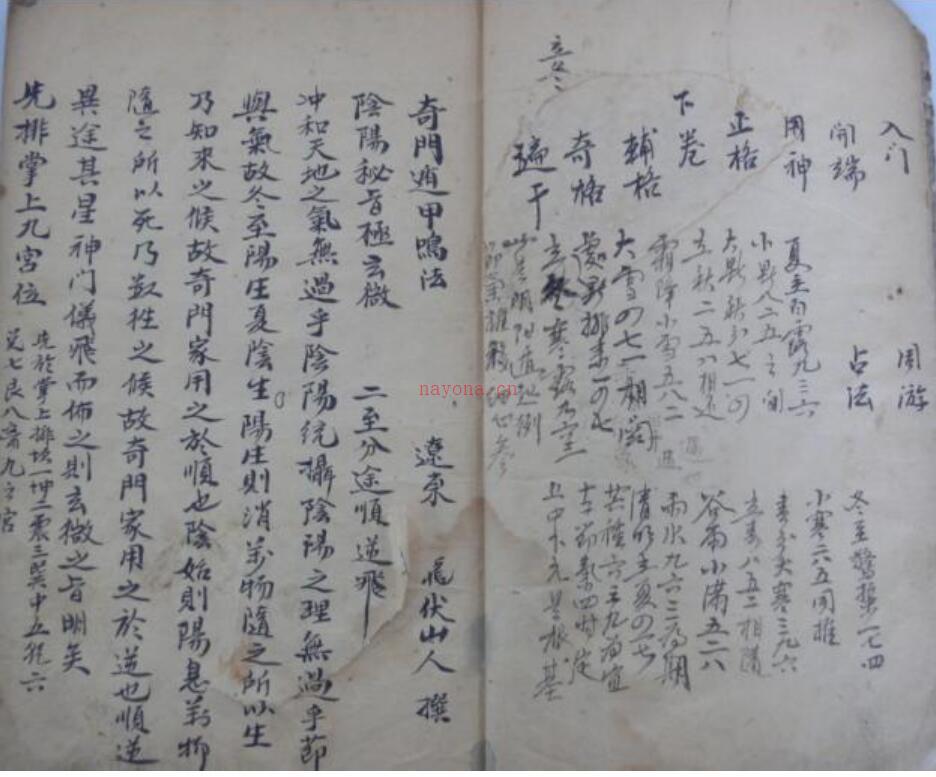 入门
開端
用神
正格
下卷
輔格
奇格
遁干
立冬
周游
占法
夏至白露九三六
小暑八二五之间
大暑秋分七一四
立秋二五八相逆
霜降小雪五八二
大雪四七一期関
處暑排来一四七
立冬寒露六九三
此是陰陽遁起例
節氣推移仔心参
冬至驚蟄一七四
小寒二八五同推
春分大寒三九六
立春八五二相隨
谷雨小满五二八
雨水九六三为期
清明立夏四一七
芒種六三九为宜
十二節氣四时定
上中下元是根基
奇門遁甲鳴法
遼東 飛伏山人 撰
陰陽秘旨極玄微 二至分途順逆飛
冲和天地之氣無過乎陰陽统攝陰陽之理無過乎節
與氣故冬至陽生夏陰生陽生則消萬物隨之所以生
乃知來之候故奇門家用之於順也陰始則陽息萬物
隨之所以死乃数往之候故奇門家用之於逆也順逆
異途其星神门儀飛而佈之則玄微之旨明矣
先排掌上九宫位 先於掌上排坎一坤二震三巽四中五乾六
兑七艮八离九之宫
nayona.cn